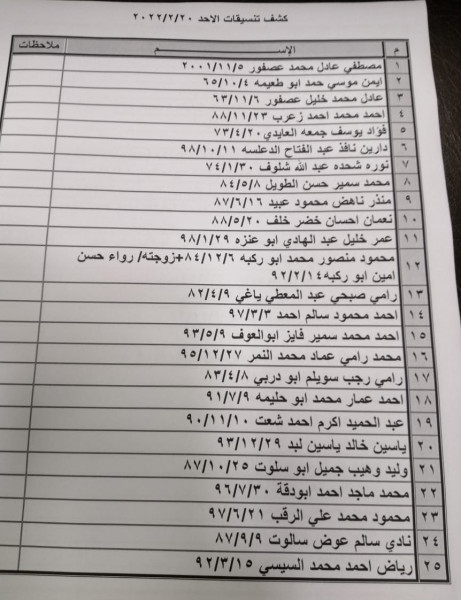 كشف تنسيقات الاحد ٢٠٢٢/٢/٢٠
م الإســـــم ملاحظات
١ مصطفي عادل محمد عصفور ٢٠٠١/١١/٥
٢ ايمن موسي حمد ابو طعيمه ٦٥/١٠/٤
٣ عادل محمد خليل عصفور ٦٣/١١/٦
٤ احمد محمد احمد زعرب ٨٨/١١/٢٣
٥ فؤاد يوسف جمعه العايدي ٧٣/٤/٢٠
٦ دارين نافذ عبد الفتاح الدعلسه ٩٨/١٠/١١
٧ نوره شحده عبد الله شلوف ٧٤/١/٣٠
٨ محمد سمير حسن الطويل ٨٤/٥/٨
٩ منذر ناهض محمود عبيد ٨٧/٦/١٦
١٠ نعمان احسان خضر خلف ٨٨/٥/٢٠
١١ عمر خليل عبد الهادي ابو عنزه ٩٨/١/٢٩
١٢ محمود منصور محمد ابو ركبه ٨٤/١٢/٦+زوجته/ رواء حسن
امين ابو ركبه ٩٢/٢/١٤
١٣ رامي صبحي عبد المعطي ياغي ٨٢/٤/٩
١٤ احمد محمود سالم احمد ٩٧/٣/٣
١٥ احمد محمد سمير فايز ابوالعوف ٩٣/٥/٩
١٦ محمد رامي عماد محمد النمر ٩٥/١٢/٢٧
١٧ رامي رجب سويلم ابو دربي ٨٣/٤/٨
١٨ احمد عمار محمد ابو حليمه ٩١/٧/٩
١٩ عبد الحميد اكرم احمد شعت ٩٠/١١/١٠
٢٠ ياسين خالد ياسين لبد ٩٣/١٢/٢٩
٢١ وليد وهيب جميل ابو سلوت ٨٧/١٠/٢٥
٢٢ محمد ماجد احمد ابودقة ٩٦/٧/٣٠
٢٣ محمود محمد علي الرقب ٩٧/٦/٢١
٢٤ نادي سالم عوض سالوت ٨٧/٩/٩
٢٥ رياض احمد محمد السيسي ٩٢/٣/١٥